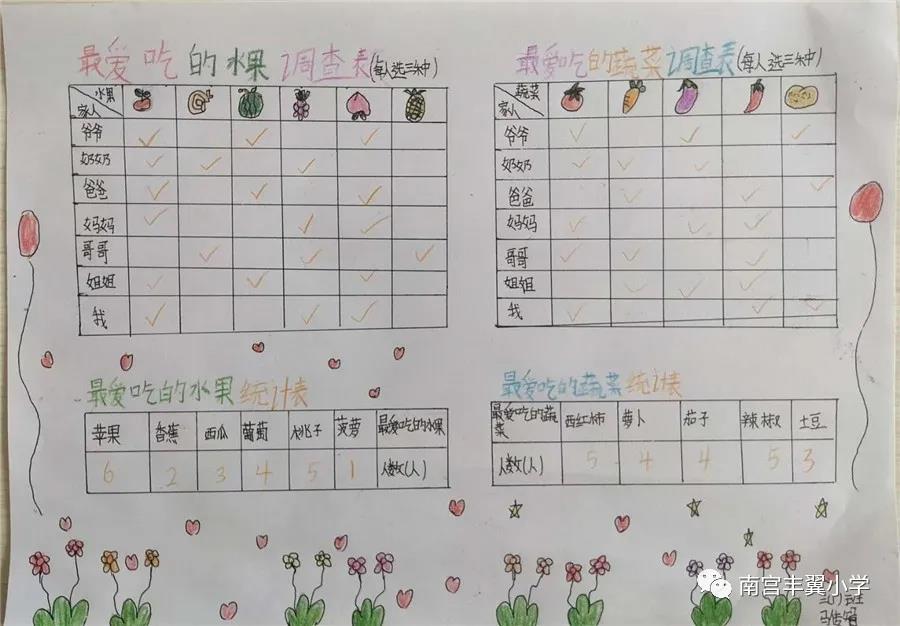 最爱吃的水果调查表(每人选三种)
水果
家人
爷爷
奶奶
爸爸
妈妈
哥哥
姐姐
我
最爱吃的蔬菜调查表(每人选三种)
蔬菜
家人
爷爷
奶奶
爸爸
妈妈
哥哥
姐姐
我
最爱吃的水果统计表
苹果 香蕉 西瓜 葡萄 桃子 菠萝 最爱吃的水果
6 2 3 4 5 1 人数(人)
最爱吃的蔬菜统计表
最爱吃的蔬菜 西红柿 萝卜 茄子 辣椒 土豆
人数(人) 5 4 4 5 3
南宫丰翼小学